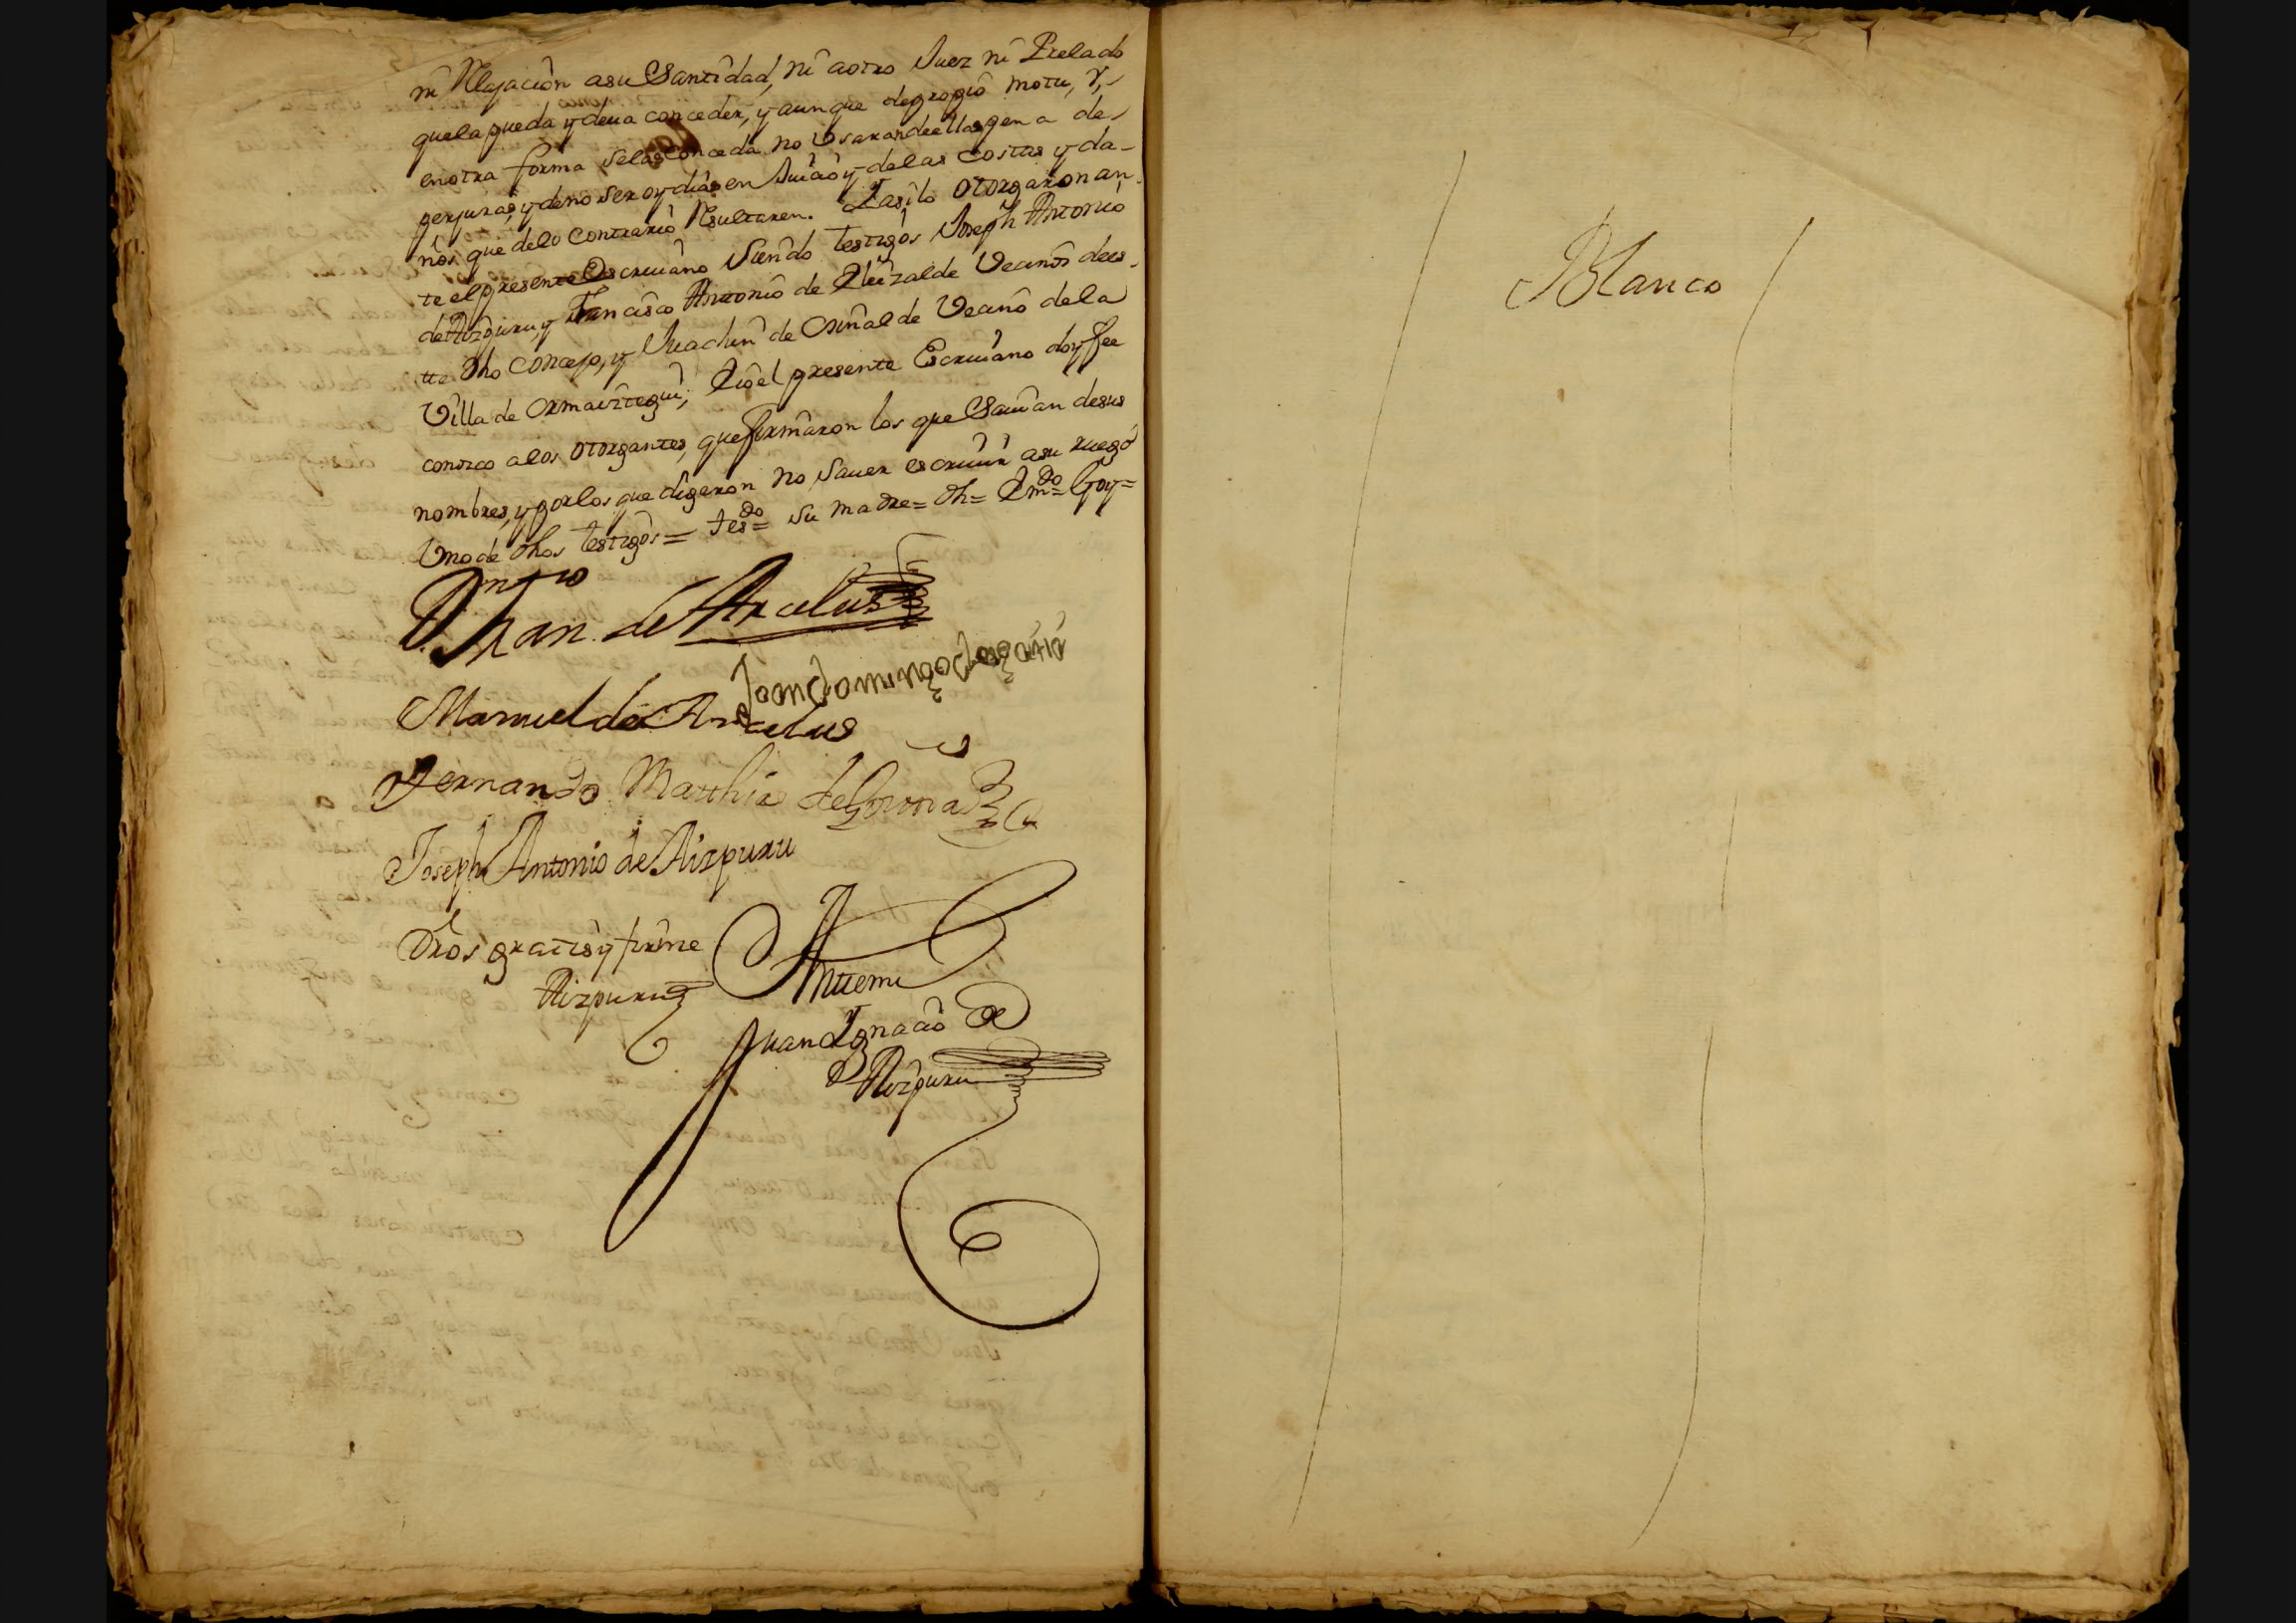 ni Relajación asu Santidad, ni aotro Juez ni Prelado
quela pueda y deva conceder, y aunque depropio motu, y,
enotra forma selas conceda no Usaran deellas pena de
perjuras, y deno ser oydas en Juicio y delas costas y da-
ños que delo contrario Resultaren. Y asilo otorgaron an-
te el presente Escrivano siendo testigos Joseph Antonio
de Aizpuru, y Francisco Antonio de Elizalde Vecinos dees-
tte dho Concejo, y Juachin de Oxinalde Vecino dela
Villa de Ormaiztegui, Yo el presente Escrivano doy fee
conozco alos otorgantes, que firmaron los que Savian desus
nombres, y porlos que digeron no saver escrivir asu ruego
Uno de dhos testigos = tesdo = su madre = dh = Emdo = Goy =
Dn Fran. de Arcelus
Juan domingo
Manuel de Arcelus
Fernando Mathias de
Joseph Antonio de Aizpuru
Dros gratis y firme
Aizpuru
Antemi
Juan Ygnacio de
Aizpuru
Blanco